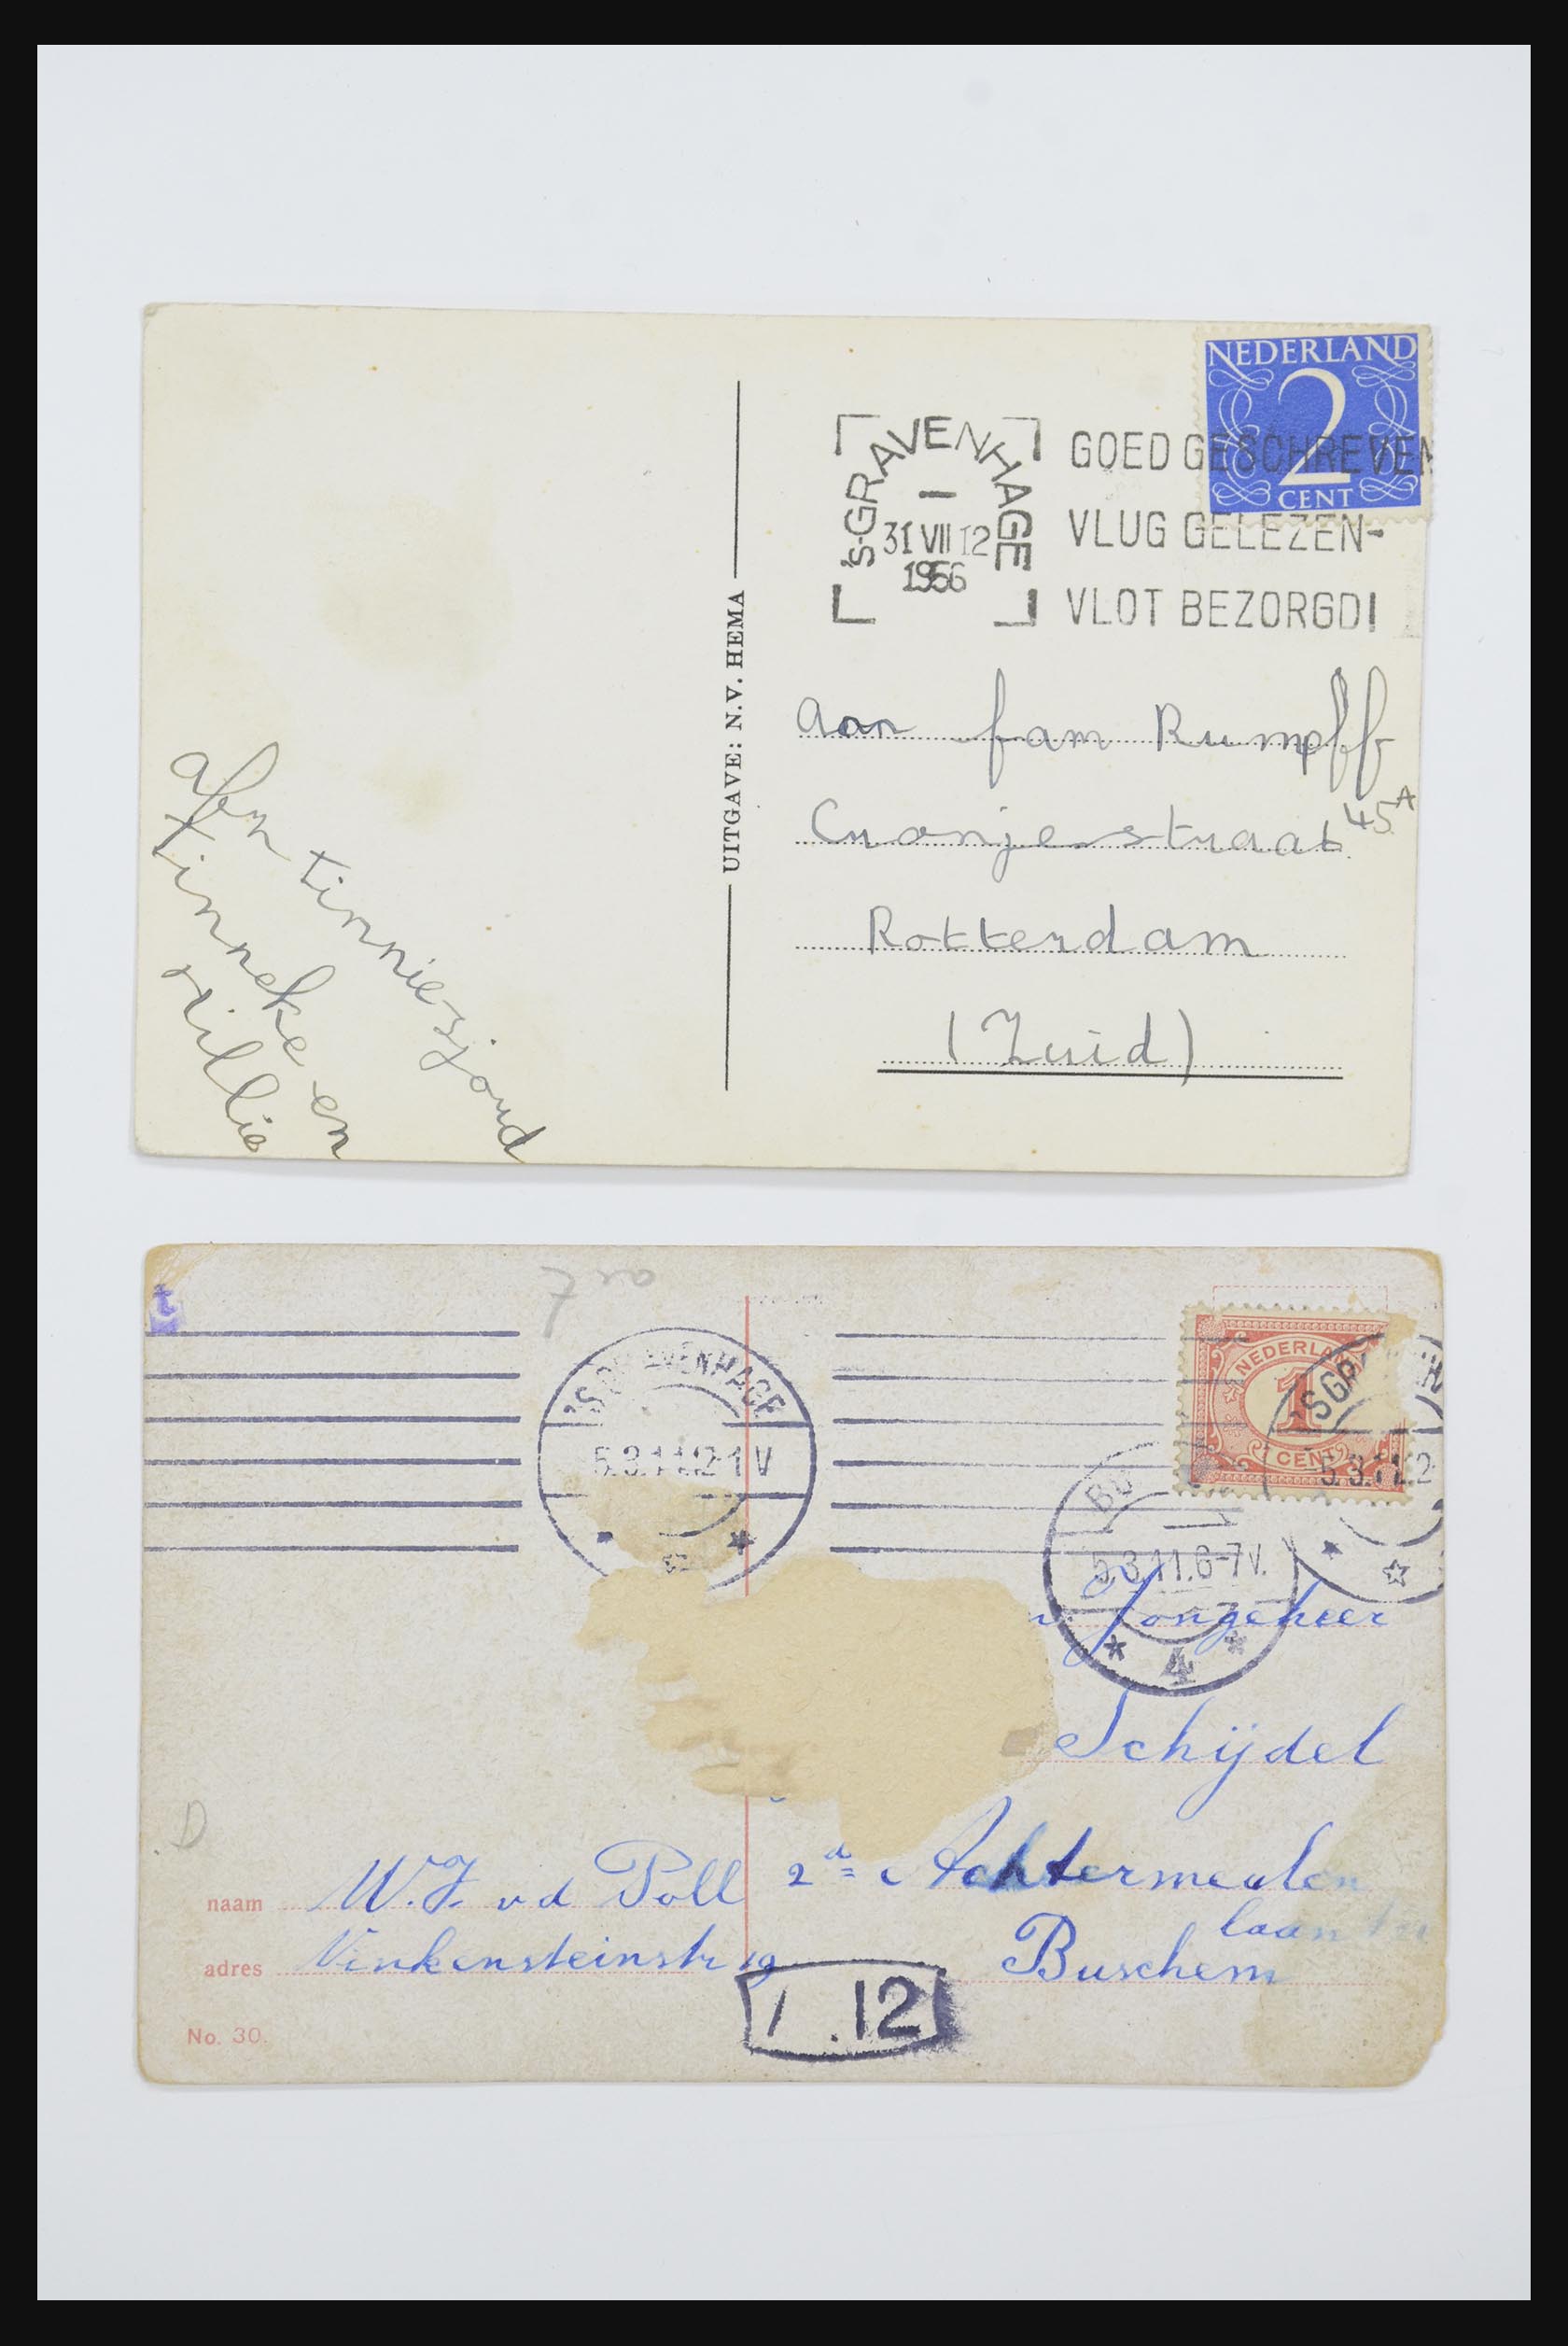 NEDERLAND
2
CENT
'S-GRAVENHAGE
I
31 VII 12
1956
GOED GESCHREVEN
VLUG GELEZEN-
VLOT BEZORGD!
Aan fam Rumpff
Cronjestraat 45A
Rotterdam
(Zuid)
UITGAVE: N.V. HEMA
Afz tinnie sjoud
tinneke en
rillie
NEDERLAND
1
1 CENT
'SGRAVENHAGE
5.3.11.12-1 V
'SGRA
5.3.11.12
BU
5.3.11.6-7V.
4
Jongeheer
Schijdel
2d= Achtermeulen
laan
Buschem
naam W.J. vd Poll
adres Vinkensteinstr 19
1.12
No. 30.
D